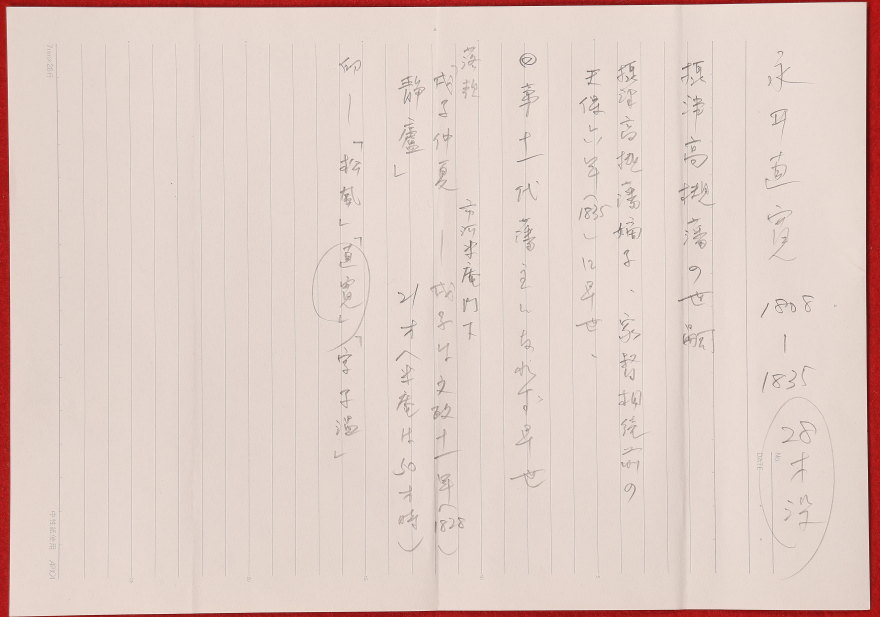 永井直寛 1808 — 1835 28才没
摂津高槻藩の世嗣
摂津高槻藩嫡子、家督相続前の
天保六年(1835)に早世、
◎第十一代藩主になれず早世
落款 市河米庵門下
「戊子仲夏 — 戊子は文政十一年(1828)
静廬」 21才(米庵は50才時)
印—「松風」「直寛」「字子温」
NO.
DATE